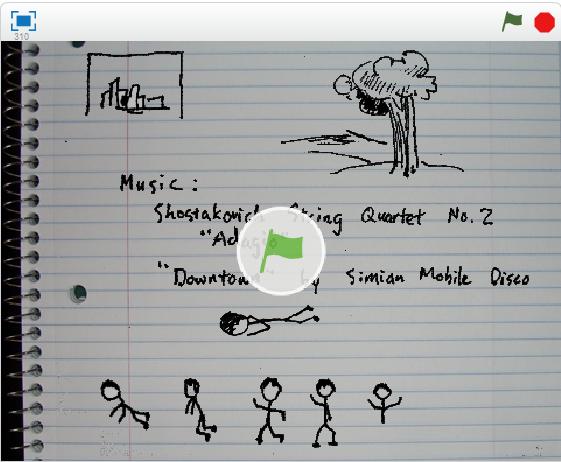 310
Music:
Shostakovich String Quartet No. 2
"Adagio"
"Downtown" by Simian Mobile Disco